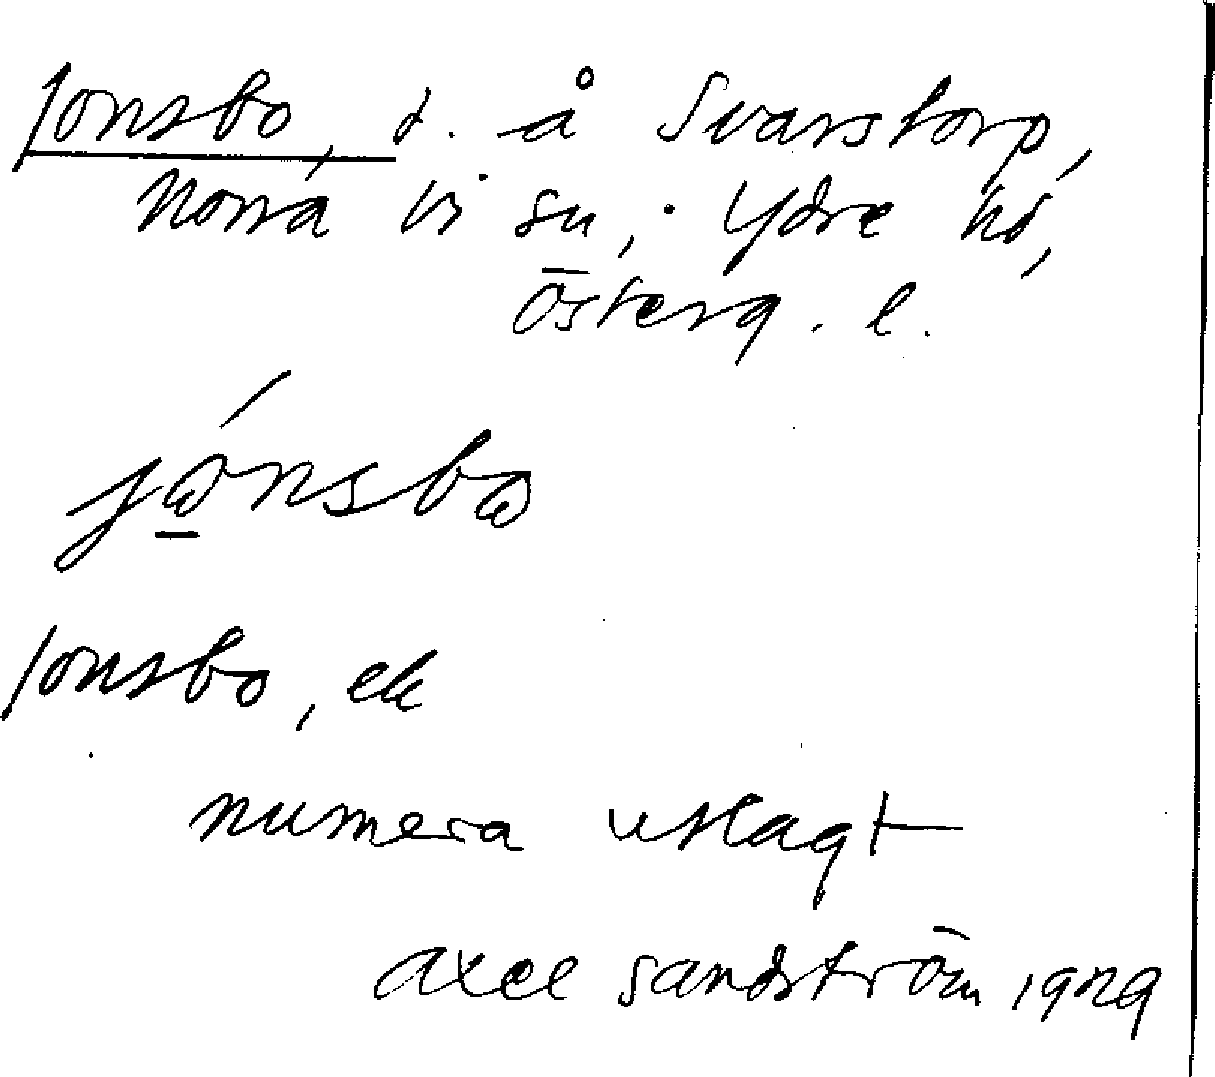 Jonsbo, t. å Svarstorp,
Norra Vi sn, Ydre hd,
Österg. l.
jɷnsbɷ
Jonsbo, ek
numera utlagt
Axel Sandström 1929